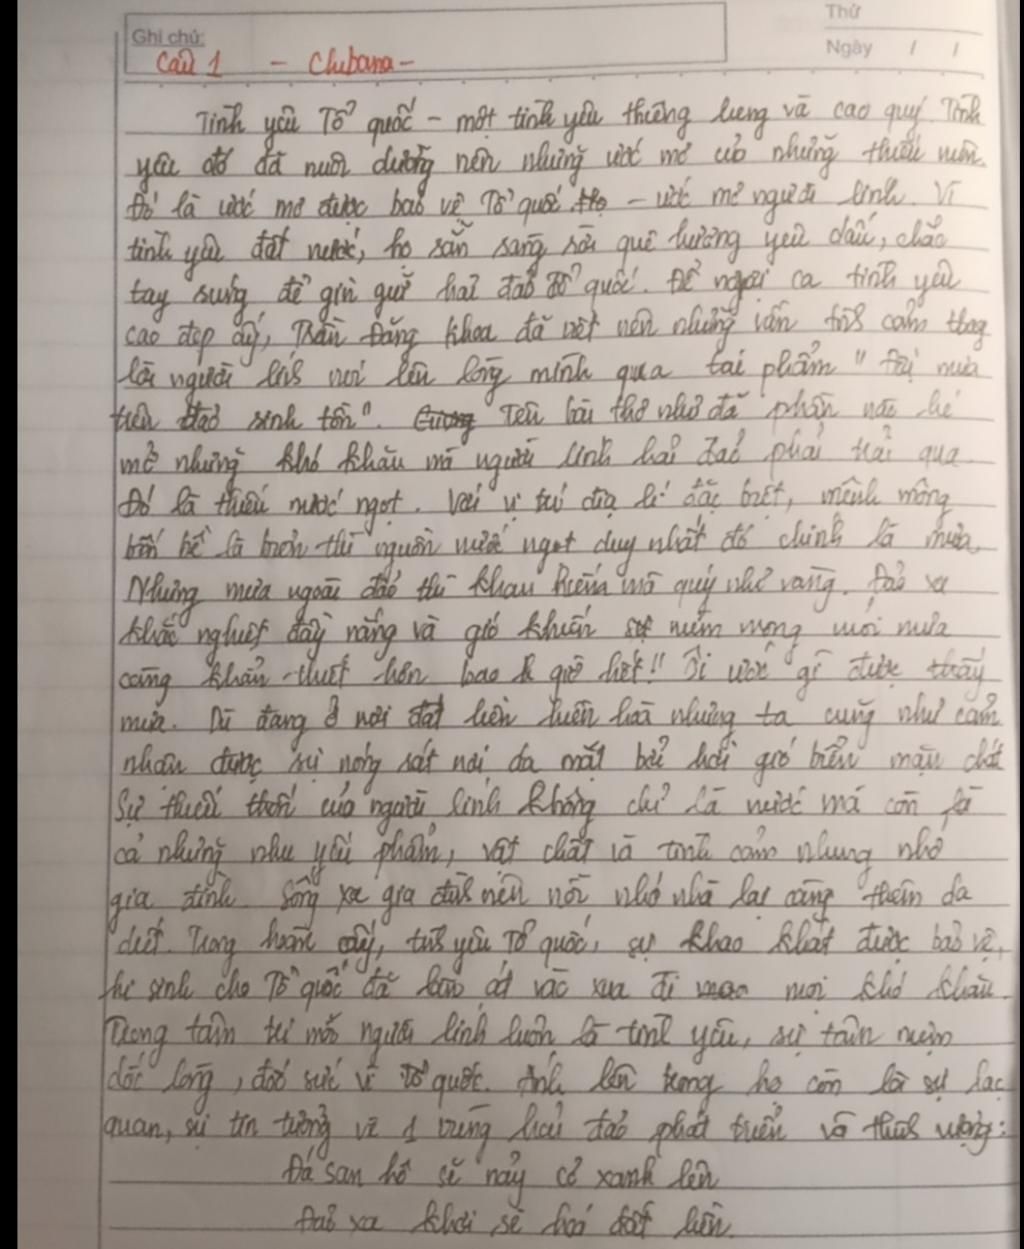 Thứ
Ghi chú:
Ngày / /
Câu 1 - Chubana-
Tình yêu Tổ quốc - một tình yêu thiêng liêng và cao quý. Tình
yêu đó đã nuôi dưỡng nên những ước mơ của những thiếu niên.
Đó là ước mơ được bảo vệ Tổ quốc - ước mơ người lính. Vì
tình yêu đất nước, họ sẵn sàng rời quê hương yêu dấu, chắc
tay súng để gìn giữ hải đảo Tổ quốc. Để ngợi ca tình yêu
cao đẹp ấy, Trần Đăng Khoa đã viết nên những vần thơ cảm
người lính nơi lên lòng mình qua tác phẩm " Đợi mưa
trên đảo sinh tồn". Tên bài thơ như đã phần nào hé
mở những khó khăn mà người lính hải đảo phải trải qua
Đó là thiếu nước ngọt. Với vị trí địa lí đặc biệt, mênh mông
bốn bề là biển thì nguồn nước ngọt duy nhất đó chính là mưa,
Nhưng mưa ngoài đảo thì khan hiếm mà quý như vàng. Đảo xa
khắc nghiệt đầy nắng và gió khiến sự niềm mong mỏi mưa
càng khẩn thiết hơn bao giờ hết!! Ôi ước gì được thấy
mưa. Dù đang ở nơi đất liền nhưng ta cũng như cảm
nhận được sự nóng sát nơi da mặt bởi hơi gió biển mặn chát
Sự thiếu thốn của người lính không chỉ là nước mà còn là
cả những nhu yếu phẩm, vật chất và tình cảm nhung nhớ
gia đình. Sống xa gia đình nên nỗi nhớ nhà lại càng thêm da
diết. Trong hoàn cảnh ấy, tình yêu Tổ quốc, sự khao khát được bảo vệ,
hi sinh cho Tổ quốc đã lấn át và xua đi mọi khó khăn.
Trong tâm trí mỗi người lính luôn là tình yêu, sự tâm niệm
dốc lòng, dốc sức vì Tổ quốc. Ánh lên trong họ còn là sự lạc
quan, sự tin tưởng về 1 vùng hải đảo phát triển và thịnh vượng:
Đá san hô sẽ nảy cỏ xanh lên
Đảo xa khơi sẽ hoá đất liền.